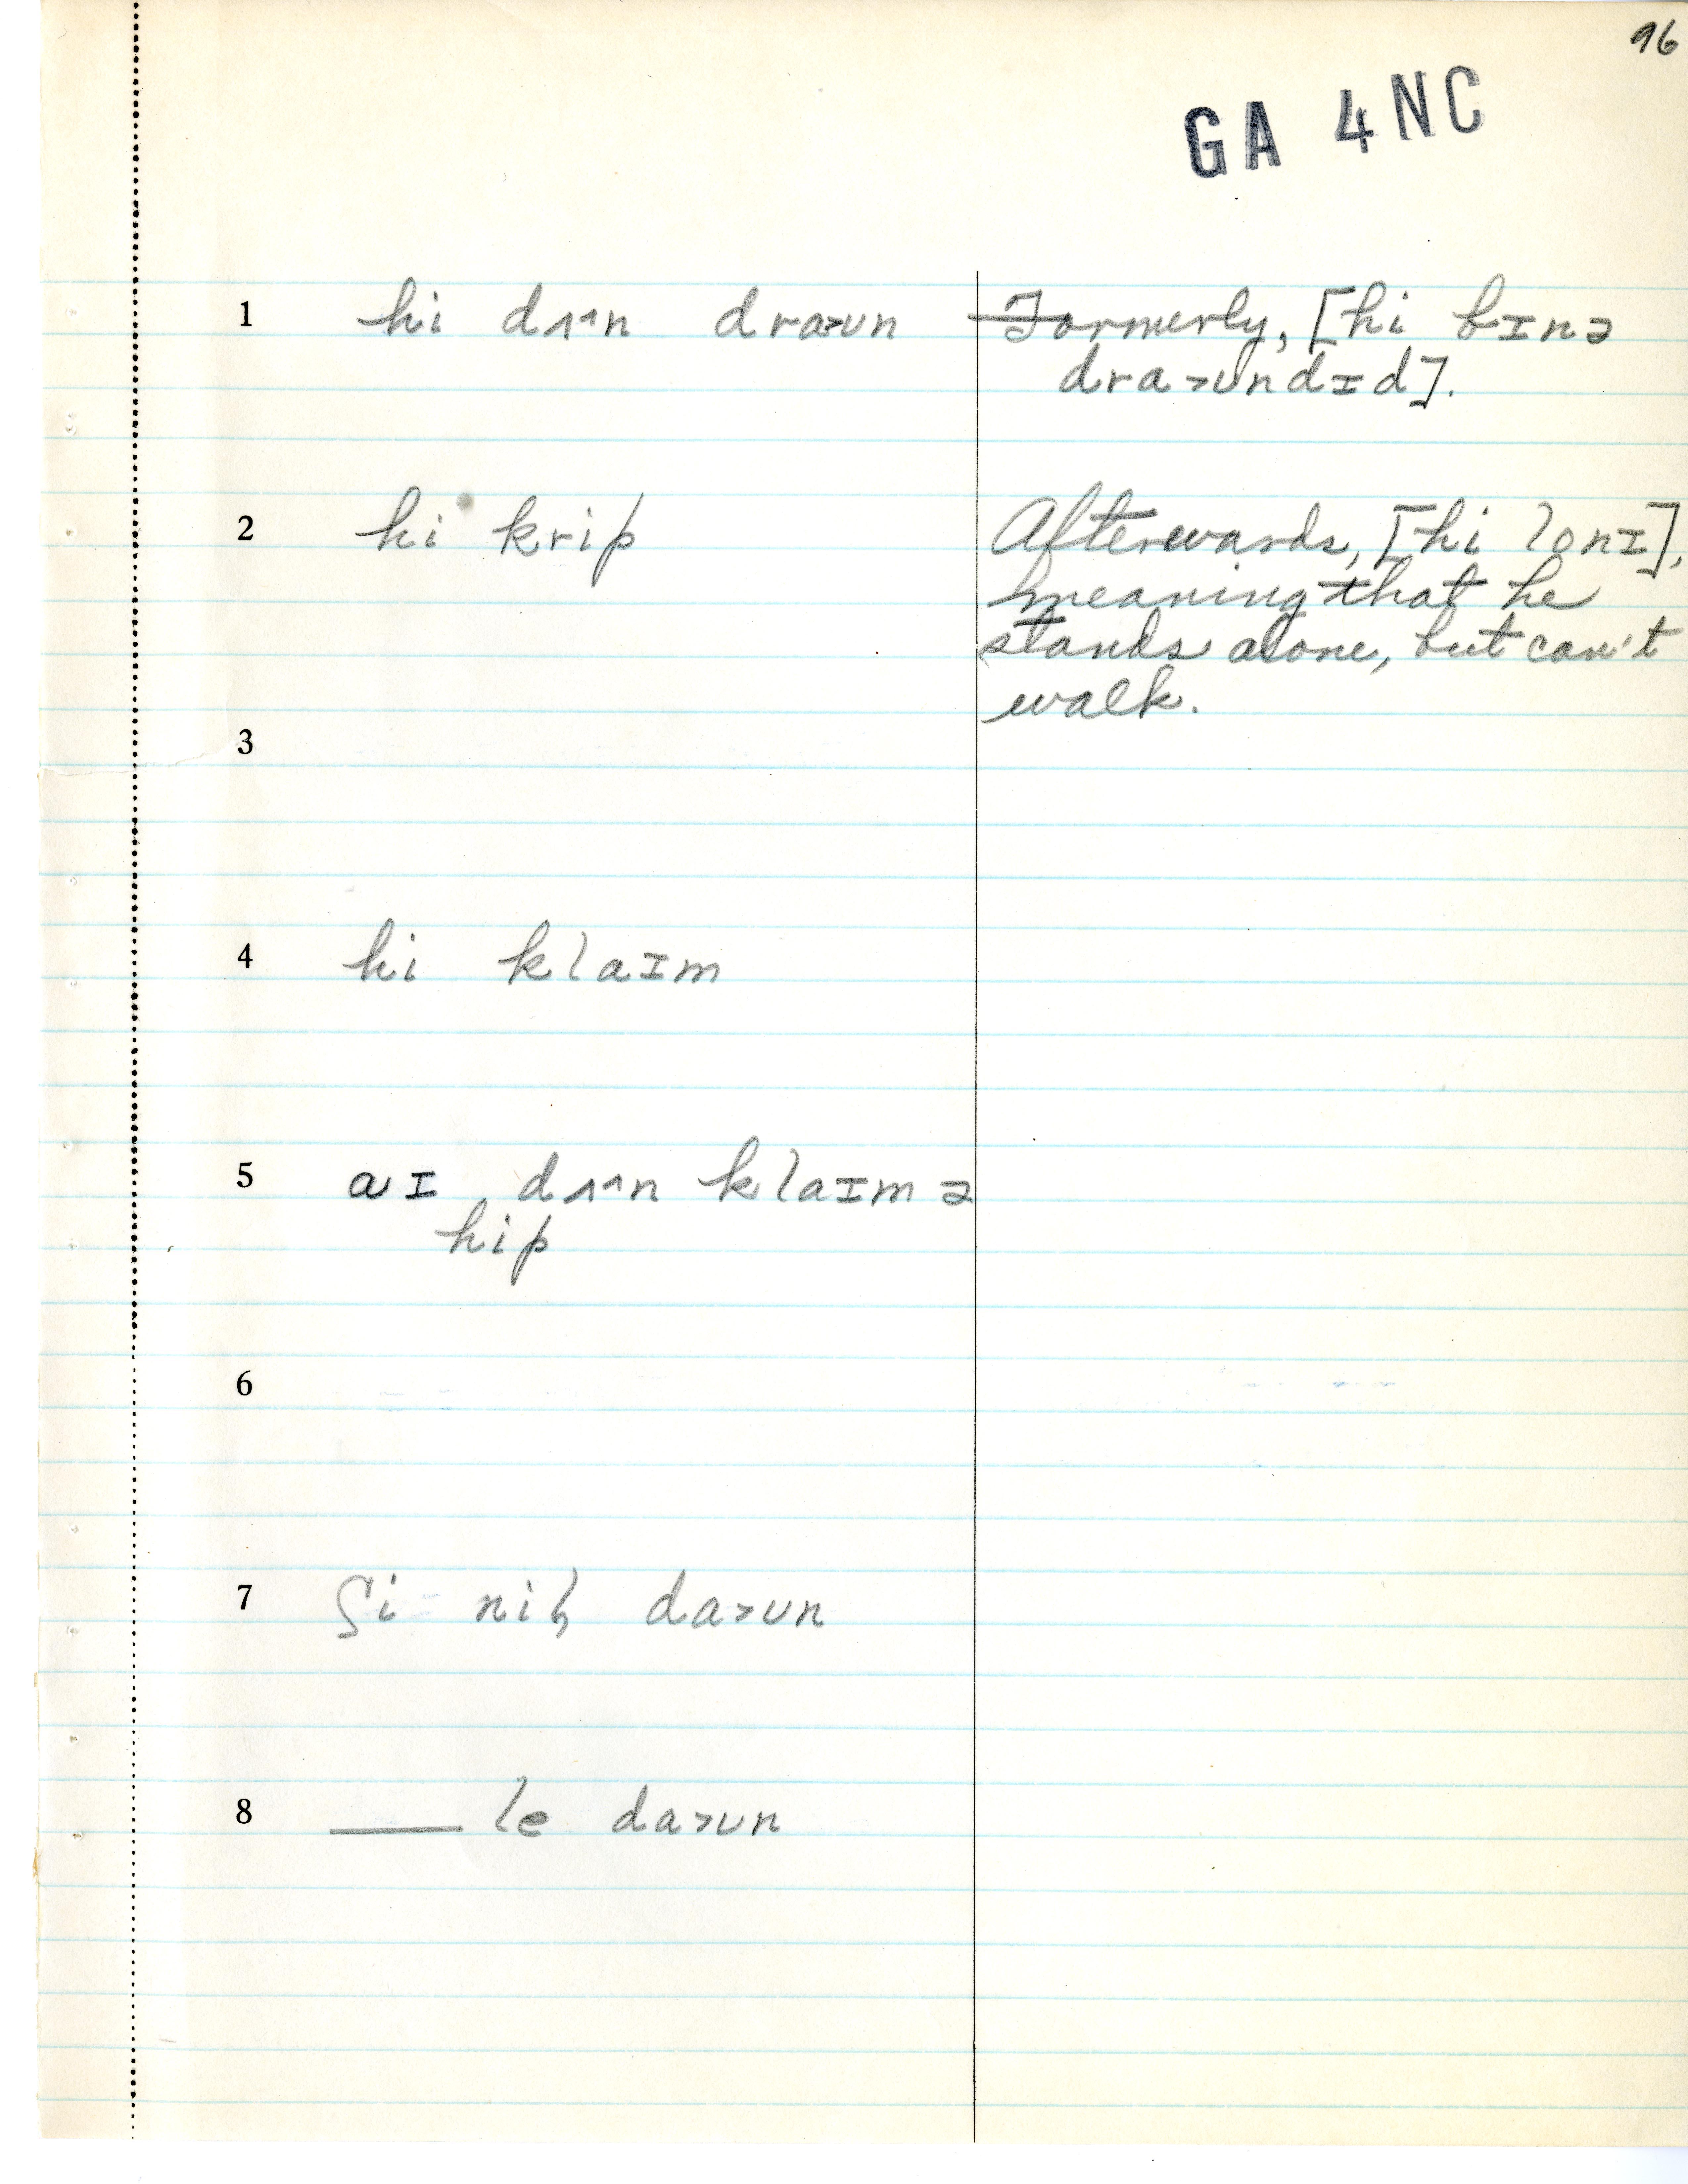 96
GA 4NC
1 hi dʌ^n dra˃ʊn Formerly, [hi bɪnə
dra˃ʊndɪd].
2 hi krip Afterwards, [hi lonɪ],
meaning that he
stands alone, but can't
walk.
3
4 hi klaɪm
5 aɪ dʌ^n klaɪm ə
hip
6
7 ʃi niɫ da˃ʊn
8 ___ le da˃ʊn